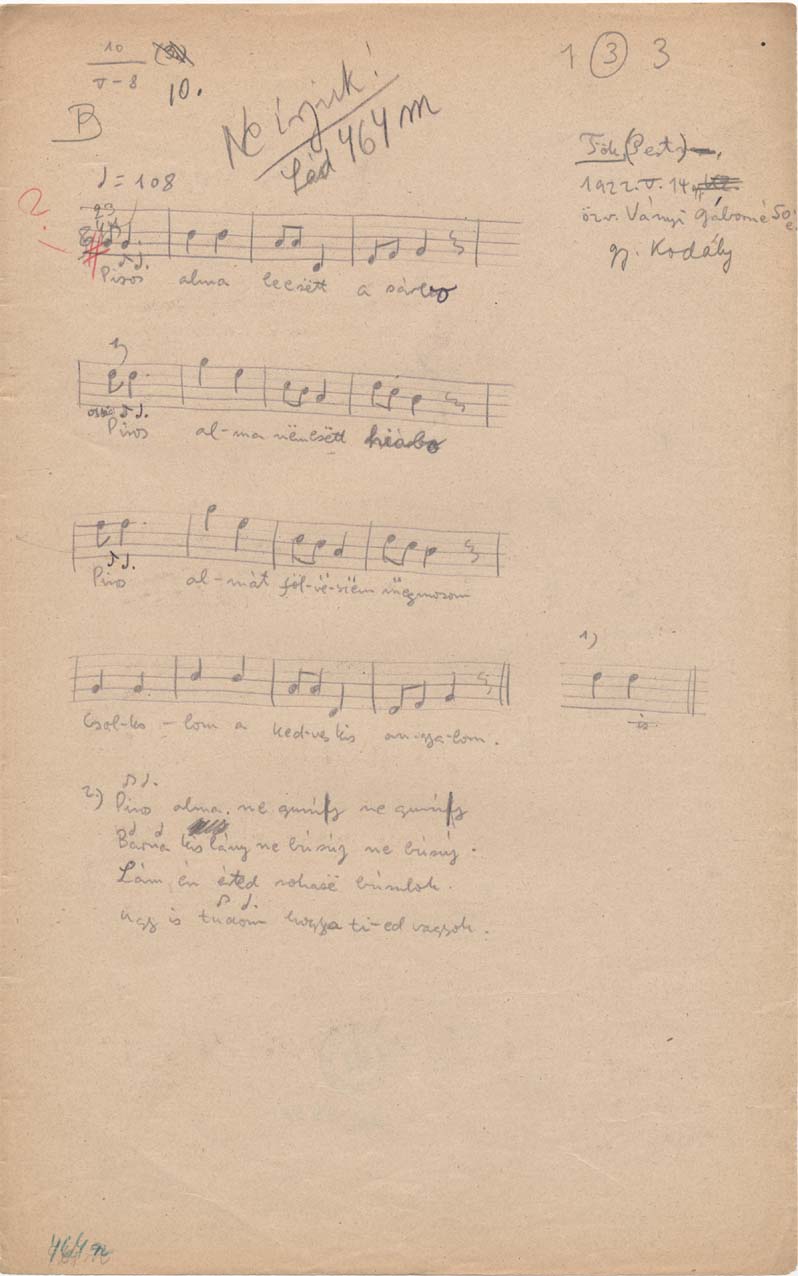 10
V-8
10.
1 3 3
B
Ne írjuk!
Lásd 464 m
Tök (Pest),
1922. V. 14.
özv. Ványi Gáborné 50 é.
gy. Kodály
♩ = 108
?
Piros alma leesëtt a sárbo
1)
Piros al-ma nëm esëtt hiábo
Piros al-mát föl-vë-szëm mëgmosom
Csol-ko-lom a ked-ves kis an-gya-lom.
1)
is
2.) Piros alma. ne gurúly ne gurúly
Barna kis lány ne búsúj ne búsúj.
Lám én éted sohasë búsulok.
Úgy is tudom hogy a ti-ed vagyok.
464 m